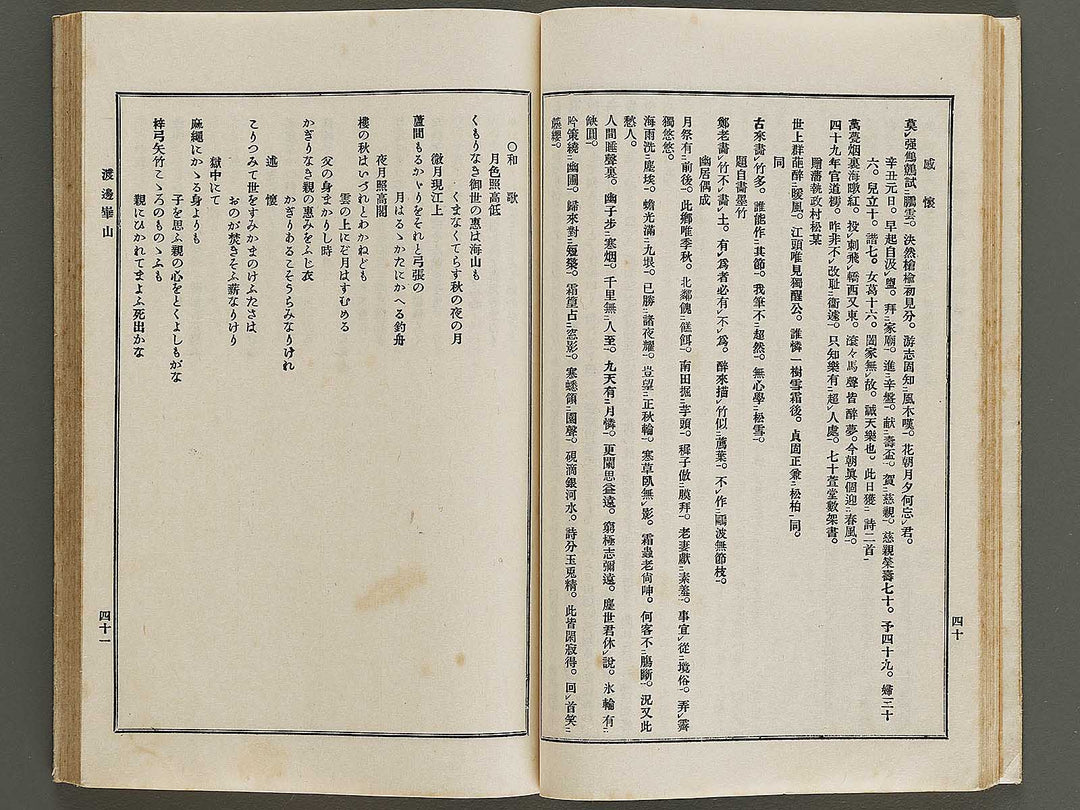 感懷
莫㆑强鷦鷯試㆓鵬雲㆒。決然槍楡初見㆑分。游志固知㆓風木嘆㆒。花朝月夕何忘㆑君。
辛丑元日。早起自汲㆑壐。拜㆓家廟㆒。進㆓辛盤㆒。献㆓壽盃㆒。賀㆓慈親㆒。慈親筭壽七十。予四十九。婦三十
六。兒立十。諧七。女葛十六。闔家無㆑故。誠天樂也。此日獲㆓詩二首㆒
萬甍烟裏海暾紅。投㆑刺飛㆑轎西又東。滾々馬聲皆醉夢。今朝眞個迎㆓春風㆒。
四十九年官道柳。昨非不㆑改耻㆓衞遽㆒。只知樂有㆓超㆑人處㆒。七十萱堂數架書。
贈藩執政村松某
世上群葩醉㆓暖風㆒。江頭唯見獨醒公。誰憐一樹雪霜後。貞固正兼㆓松柏㆒同。
同
古來畵㆑竹多。誰能作㆓其節㆒。我筆不㆓超然㆒。無心學㆓松雪㆒。
題自畵墨竹
鄭老畵㆑竹不㆑畵㆑土。有㆑爲者必有㆑不㆑爲。醉來描㆑竹似㆓蔫葉㆒。不㆑作㆓鷗波無節枝㆒。
幽居偶成
月祭有㆓前後㆒。此鄕唯季秋。北鄰餽㆓餻餌㆒。南田掘㆓芋頭㆒。穉子倣㆓膜拜㆒。老妻獻㆓素羞㆒。事宜㆑從㆓境俗㆒。弄㆑霽
獨悠悠。
海雨洗㆓塵埃㆒。蟾光滿㆓九垠㆒。已勝㆓諸夜耀㆒。豈望㆓正秋輪㆒。寒草臥無㆑影。霜蟲老尙呻。何客不㆓膓斷㆒。況又此
愁人。
人間睡聲裏。幽子步㆓寒烟㆒。千里無㆓人至㆒。九天有㆓月憐㆒。更闌思益遠。窮極志彌遠。塵世君休㆑說。氷輪有㆓
缺圓㆒。
吟策繞㆓幽圃㆒。歸來對㆓短檠㆒。霜篁占㆓窓影㆒。寒蟋領㆓園聲㆒。硯滴銀河水。詩分玉兎精。此皆閑寂得。回㆑首笑㆓
簪纓㆒。
四十
〇和歌
月色照高低
くもりなき御世の惠は海山も
くまなくてらす秋の夜の月
微月現江上
蘆間もるかゝりをそれと弓張の
月はるゝかたにかへる釣舟
夜月照高閣
樓の秋はいづれとわかねども
雲の上にぞ月はすむめる
父の身まかりし時
かぎりなき親の惠みをふじ衣
かぎりあるこそうらみなりけれ
述懷
こりつみて世をすみかまのけふたさは
おのが焚きそふ薪なりけり
獄中にて
麻繩にかゝる身よりも
子を思ふ親の心をとくよしもがな
梓弓矢竹こゝろのものゝふも
親にひかれてまよふ死出かな
渡邊崋山
四十一